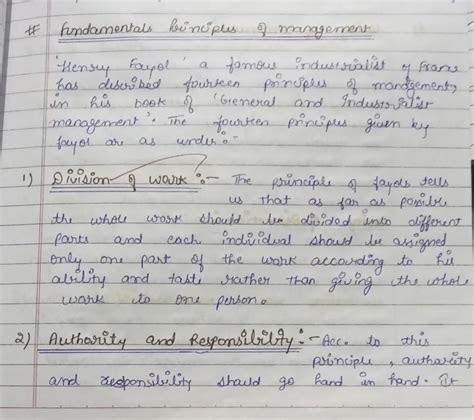 # Fundamentals Principles of management
'Henry Fayol' a famous industrialist of Frans
has described fourteen principles of management,
in his book of 'General and Industrialist
management'. The fourteen principles given by
fayol are as under:-
1) Division of work :- The principle of fayols tells
us that as far as possible,
the whole work should be divided into different
parts and each individual should be assigned
only one part of the work according to his
ability and taste rather than giving the whole
work to one person.
2) Authority and Responsibility :- Acc. to this
principle, authority
and responsibility should go hand in hand. It